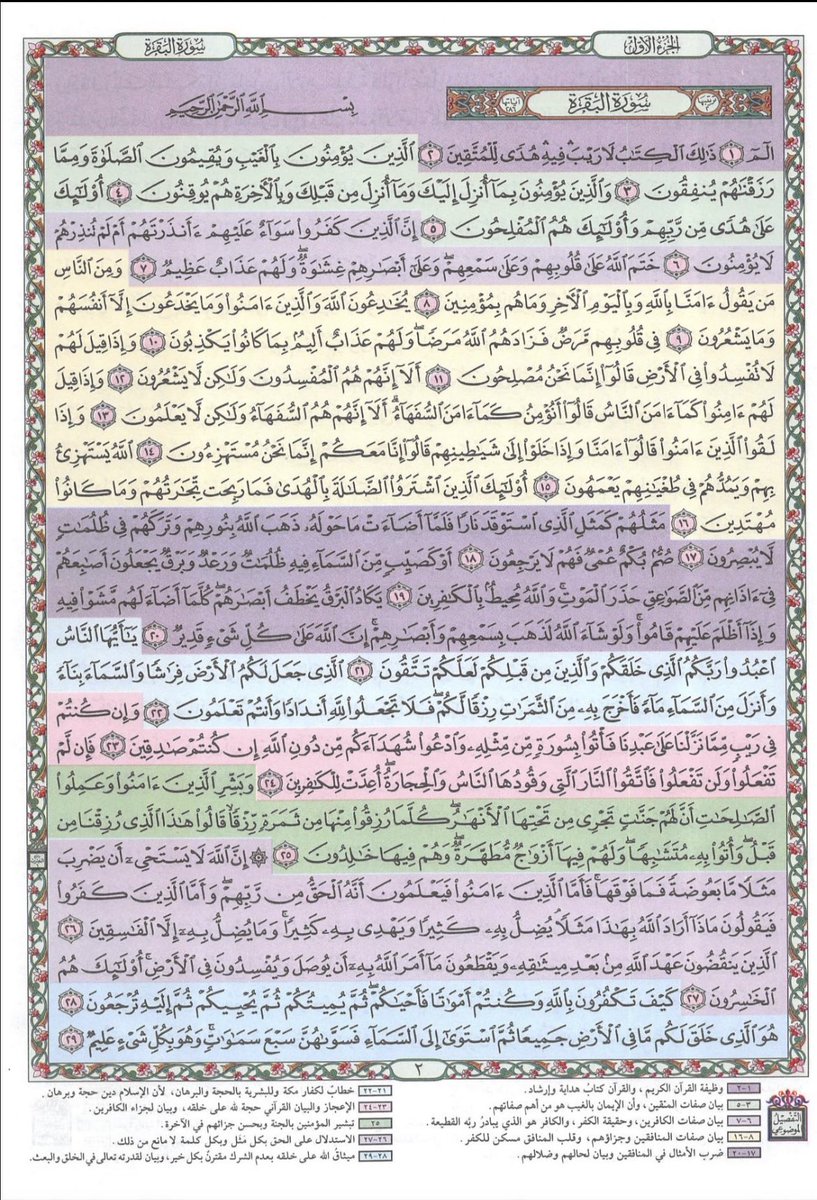 الجزء الأول
سورة البقرة
سورة البقرة
بِسْمِ ٱللَّهِ ٱلرَّحْمَٰنِ ٱلرَّحِيمِ
الٓمٓ ١ ذَٰلِكَ ٱلْكِتَٰبُ لَا رَيْبَ ۛ فِيهِ ۛ هُدًى لِّلْمُتَّقِينَ ٢ ٱلَّذِينَ يُؤْمِنُونَ بِٱلْغَيْبِ وَيُقِيمُونَ ٱلصَّلَوٰةَ وَمِمَّا
رَزَقْنَٰهُمْ يُنفِقُونَ ٣ وَٱلَّذِينَ يُؤْمِنُونَ بِمَآ أُنزِلَ إِلَيْكَ وَمَآ أُنزِلَ مِن قَبْلِكَ وَبِٱلْءَاخِرَةِ هُمْ يُوقِنُونَ ٤ أُو۟لَٰٓئِكَ
عَلَىٰ هُدًى مِّن رَّبِّهِمْ وَأُو۟لَٰٓئِكَ هُمُ ٱلْمُفْلِحُونَ ٥ إِنَّ ٱلَّذِينَ كَفَرُوا۟ سَوَآءٌ عَلَيْهِمْ ءَأَنذَرْتَهُمْ أَمْ لَمْ تُنذِرْهُمْ
لَا يُؤْمِنُونَ ٦ خَتَمَ ٱللَّهُ عَلَىٰ قُلُوبِهِمْ وَعَلَىٰ سَمْعِهِمْ ۖ وَعَلَىٰٓ أَبْصَٰرِهِمْ غِشَٰوَةٌ ۖ وَلَهُمْ عَذَابٌ عَظِيمٌ ٧ وَمِنَ ٱلنَّاسِ
مَن يَقُولُ ءَامَنَّا بِٱللَّهِ وَبِٱلْيَوْمِ ٱلْءَاخِرِ وَمَا هُم بِمُؤْمِنِينَ ٨ يُخَٰدِعُونَ ٱللَّهَ وَٱلَّذِينَ ءَامَنُوا۟ وَمَا يَخْدَعُونَ إِلَّآ أَنفُسَهُمْ
وَمَا يَشْعُرُونَ ٩ فِى قُلُوبِهِم مَّرَضٌ فَزَادَهُمُ ٱللَّهُ مَرَضًا ۖ وَلَهُمْ عَذَابٌ أَلِيمٌۢ بِمَا كَانُوا۟ يَكْذِبُونَ ١٠ وَإِذَا قِيلَ لَهُمْ
لَا تُفْسِدُوا۟ فِى ٱلْأَرْضِ قَالُوٓا۟ إِنَّمَا نَحْنُ مُصْلِحُونَ ١١ أَلَآ إِنَّهُمْ هُمُ ٱلْمُفْسِدُونَ وَلَٰكِن لَّا يَشْعُرُونَ ١٢ وَإِذَا قِيلَ
لَهُمْ ءَامِنُوا۟ كَمَآ ءَامَنَ ٱلنَّاسُ قَالُوٓا۟ أَنُؤْمِنُ كَمَآ ءَامَنَ ٱلسُّفَهَآءُ ۗ أَلَآ إِنَّهُمْ هُمُ ٱلسُّفَهَآءُ وَلَٰكِن لَّا يَعْلَمُونَ ١٣ وَإِذَا
لَقُوا۟ ٱلَّذِينَ ءَامَنُوا۟ قَالُوٓا۟ ءَامَنَّا وَإِذَا خَلَوْا۟ إِلَىٰ شَيَٰطِينِهِمْ قَالُوٓا۟ إِنَّا مَعَكُمْ إِنَّمَا نَحْنُ مُسْتَهْزِءُونَ ١٤ ٱللَّهُ يَسْتَهْزِئُ
بِهِمْ وَيَمُدُّهُمْ فِى طُغْيَٰنِهِمْ يَعْمَهُونَ ١٥ أُو۟لَٰٓئِكَ ٱلَّذِينَ ٱشْتَرَوُا۟ ٱلضَّلَٰلَةَ بِٱلْهُدَىٰ فَمَا رَبِحَت تِّجَٰرَتُهُمْ وَمَا كَانُوا۟
مُهْتَدِينَ ١٦ مَثَلُهُمْ كَمَثَلِ ٱلَّذِى ٱسْتَوْقَدَ نَارًا فَلَمَّآ أَضَآءَتْ مَا حَوْلَهُۥ ذَهَبَ ٱللَّهُ بِنُورِهِمْ وَتَرَكَهُمْ فِى ظُلُمَٰتٍ
لَّا يُبْصِرُونَ ١٧ صُمٌّۢ بُكْمٌ عُمْىٌ فَهُمْ لَا يَرْجِعُونَ ١٨ أَوْ كَصَيِّبٍ مِّنَ ٱلسَّمَآءِ فِيهِ ظُلُمَٰتٌ وَرَعْدٌ وَبَرْقٌ يَجْعَلُونَ أَصَٰبِعَهُمْ
فِىٓ ءَاذَانِهِم مِّنَ ٱلصَّوَٰعِقِ حَذَرَ ٱلْمَوْتِ ۚ وَٱللَّهُ مُحِيطٌۢ بِٱلْكَٰفِرِينَ ١٩ يَكَادُ ٱلْبَرْقُ يَخْطَفُ أَبْصَٰرَهُمْ ۖ كُلَّمَآ أَضَآءَ لَهُم مَّشَوْا۟ فِيهِ
وَإِذَآ أَظْلَمَ عَلَيْهِمْ قَامُوا۟ ۚ وَلَوْ شَآءَ ٱللَّهُ لَذَهَبَ بِسَمْعِهِمْ وَأَبْصَٰرِهِمْ ۚ إِنَّ ٱللَّهَ عَلَىٰ كُلِّ شَىْءٍ قَدِيرٌ ٢٠ يَٰٓأَيُّهَا ٱلنَّاسُ
ٱعْبُدُوا۟ رَبَّكُمُ ٱلَّذِى خَلَقَكُمْ وَٱلَّذِينَ مِن قَبْلِكُمْ لَعَلَّكُمْ تَتَّقُونَ ٢١ ٱلَّذِى جَعَلَ لَكُمُ ٱلْأَرْضَ فِرَٰشًا وَٱلسَّمَآءَ بِنَآءً
وَأَنزَلَ مِنَ ٱلسَّمَآءِ مَآءً فَأَخْرَجَ بِهِۦ مِنَ ٱلثَّمَرَٰتِ رِزْقًا لَّكُمْ ۖ فَلَا تَجْعَلُوا۟ لِلَّهِ أَندَادًا وَأَنتُمْ تَعْلَمُونَ ٢٢ وَإِن كُنتُمْ
فِى رَيْبٍ مِّمَّا نَزَّلْنَا عَلَىٰ عَبْدِنَا فَأْتُوا۟ بِسُورَةٍ مِّن مِّثْلِهِۦ وَٱدْعُوا۟ شُهَدَآءَكُم مِّن دُونِ ٱللَّهِ إِن كُنتُمْ صَٰدِقِينَ ٢٣ فَإِن لَّمْ
تَفْعَلُوا۟ وَلَن تَفْعَلُوا۟ فَٱتَّقُوا۟ ٱلنَّارَ ٱلَّتِى وَقُودُهَا ٱلنَّاسُ وَٱلْحِجَارَةُ ۖ أُعِدَّتْ لِلْكَٰفِرِينَ ٢٤ وَبَشِّرِ ٱلَّذِينَ ءَامَنُوا۟ وَعَمِلُوا۟
ٱلصَّٰلِحَٰتِ أَنَّ لَهُمْ جَنَّٰتٍ تَجْرِى مِن تَحْتِهَا ٱلْأَنْهَٰرُ ۖ كُلَّمَا رُزِقُوا۟ مِنْهَا مِن ثَمَرَةٍ رِّزْقًا ۙ قَالُوا۟ هَٰذَا ٱلَّذِى رُزِقْنَا مِن
قَبْلُ ۖ وَأُتُوا۟ بِهِۦ مُتَشَٰبِهًا ۖ وَلَهُمْ فِيهَآ أَزْوَٰجٌ مُّطَهَّرَةٌ ۖ وَهُمْ فِيهَا خَٰلِدُونَ ٢٥ ۞ إِنَّ ٱللَّهَ لَا يَسْتَحْىِۦٓ أَن يَضْرِبَ
مَثَلًا مَّا بَعُوضَةً فَمَا فَوْقَهَا ۚ فَأَمَّا ٱلَّذِينَ ءَامَنُوا۟ فَيَعْلَمُونَ أَنَّهُ ٱلْحَقُّ مِن رَّبِّهِمْ ۖ وَأَمَّا ٱلَّذِينَ كَفَرُوا۟
فَيَقُولُونَ مَاذَآ أَرَادَ ٱللَّهُ بِهَٰذَا مَثَلًا ۘ يُضِلُّ بِهِۦ كَثِيرًا وَيَهْدِى بِهِۦ كَثِيرًا ۚ وَمَا يُضِلُّ بِهِۦٓ إِلَّا ٱلْفَٰسِقِينَ ٢٦
ٱلَّذِينَ يَنقُضُونَ عَهْدَ ٱللَّهِ مِنۢ بَعْدِ مِيثَٰقِهِۦ وَيَقْطَعُونَ مَآ أَمَرَ ٱللَّهُ بِهِۦٓ أَن يُوصَلَ وَيُفْسِدُونَ فِى ٱلْأَرْضِ ۚ أُو۟لَٰٓئِكَ هُمُ
ٱلْخَٰسِرُونَ ٢٧ كَيْفَ تَكْفُرُونَ بِٱللَّهِ وَكُنتُمْ أَمْوَٰتًا فَأَحْيَٰكُمْ ۖ ثُمَّ يُمِيتُكُمْ ثُمَّ يُحْيِيكُمْ ثُمَّ إِلَيْهِ تُرْجَعُونَ ٢٨
هُوَ ٱلَّذِى خَلَقَ لَكُم مَّا فِى ٱلْأَرْضِ جَمِيعًا ثُمَّ ٱسْتَوَىٰٓ إِلَى ٱلسَّمَآءِ فَسَوَّىٰهُنَّ سَبْعَ سَمَٰوَٰتٍ ۚ وَهُوَ بِكُلِّ شَىْءٍ عَلِيمٌ ٢٩
٢
التفصيل الموضوعي
١-٢ وظيفة القرآن الكريم، والقرآن كتابُ هداية وإرشاد.
٣-٥ بيان صفات المتّقين، وأن الإيمان بالغيب هو من أهم صفاتهم.
٦-٧ بيان صفات الكافرين، وحقيقة الكفر، والكافر هو الذي يبادرُ ربّه القطيعة.
٨-١٦ بيان صفات المنافقين وجزاؤهم، وقلب المنافق مسكن للكفر.
١٧-٢٠ ضرب الأمثال في المنافقين وبيان لحالهم وضلالهم.
٢١-٢٢ خطابٌ لكفار مكة وللبشرية بالحجة والبرهان، لأن الإسلام دين حجة وبرهان.
٢٣-٢٤ الإعجاز والبيان القرآني حجة لله على خلقه، وبيان لجزاء الكافرين.
٢٥ تبشير المؤمنين بالجنة وبحسن جزائهم في الآخرة.
٢٦-٢٧ الاستدلال على الحق بكل مثل وبكل كلمة لا مانع من ذلك.
٢٨-٢٩ ميثاقُ الله على خلقه بعدم الشرك مقترنٌ بكل خير، وبيان لقدرته تعالى في الخلق والبعث.